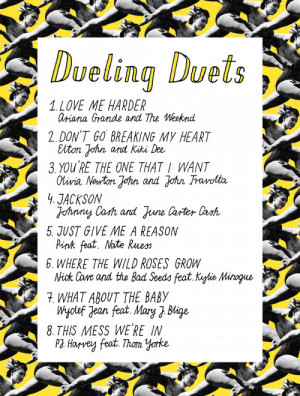 Dueling Duets
1. LOVE ME HARDER
Ariana Grande and The Weeknd
2. DON'T GO BREAKING MY HEART
Elton John and Kiki Dee
3. YOU'RE THE ONE THAT I WANT
Olivia Newton John and John Travolta
4. JACKSON
Johnny Cash and June Carter Cash
5. JUST GIVE ME A REASON
Pink feat. Nate Ruess
6. WHERE THE WILD ROSES GROW
Nick Cave and the Bad Seeds feat. Kylie Minogue
7. WHAT ABOUT THE BABY
Wyclef Jean feat. Mary J. Blige
8. THIS MESS WE'RE IN
PJ Harvey feat. Thom Yorke